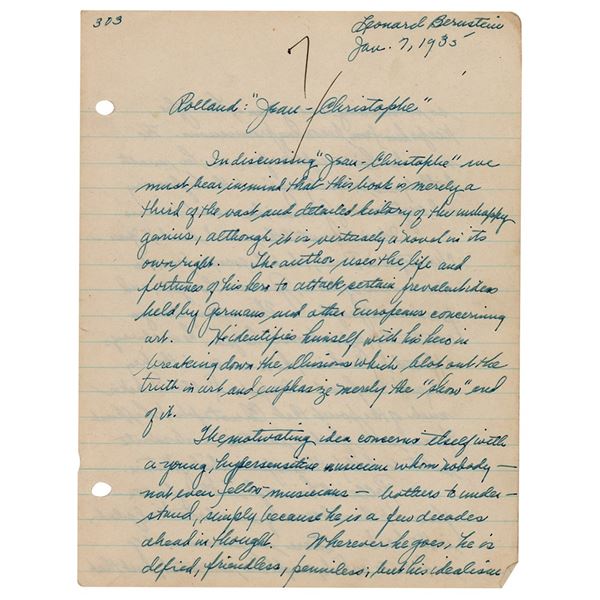 303
Leonard Bernstein
Jan. 7, 1935
Rolland: "Jean-Christophe"
In discussing "Jean-Christophe" we
must bear in mind that this book is merely a
third of the vast and detailed history of the unhappy
genius, although it is virtually a novel in its
own right. The author uses the life and
fortunes of his hero to attack certain prevalent ideas
held by Germans and other Europeans concerning
art. He identifies himself with his hero in
breaking down the illusions which blot out the
truth in art and emphasize merely the "show" end
of it.
The motivating idea concerns itself with
a young, hypersensitive musician whom nobody —
not even fellow-musicians — bothers to under-
stand, simply because he is a few decades
ahead in thought. Wherever he goes, he is
defied, friendless, penniless; but his idealism